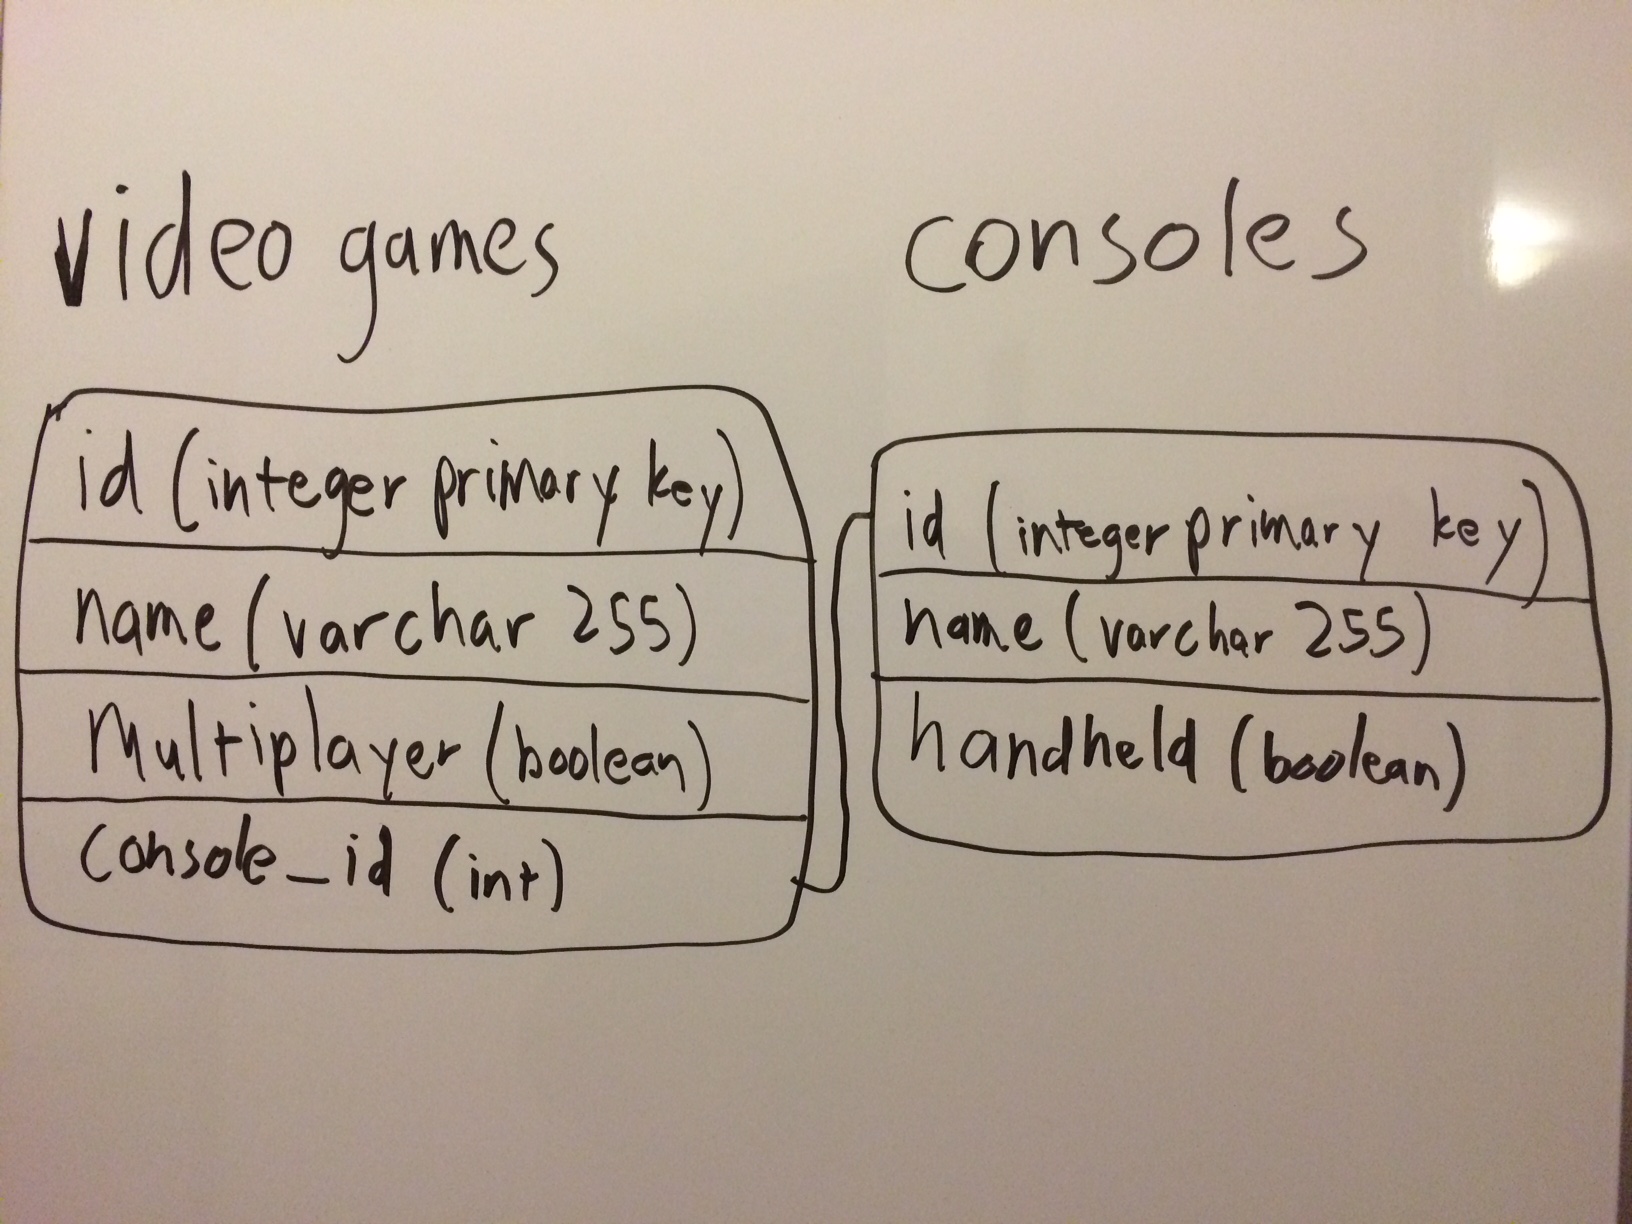 video games
id (integer primary key)
name (varchar 255)
Multiplayer (boolean)
console_id (int)
consoles
id (integer primary key)
name (varchar 255)
handheld (boolean)